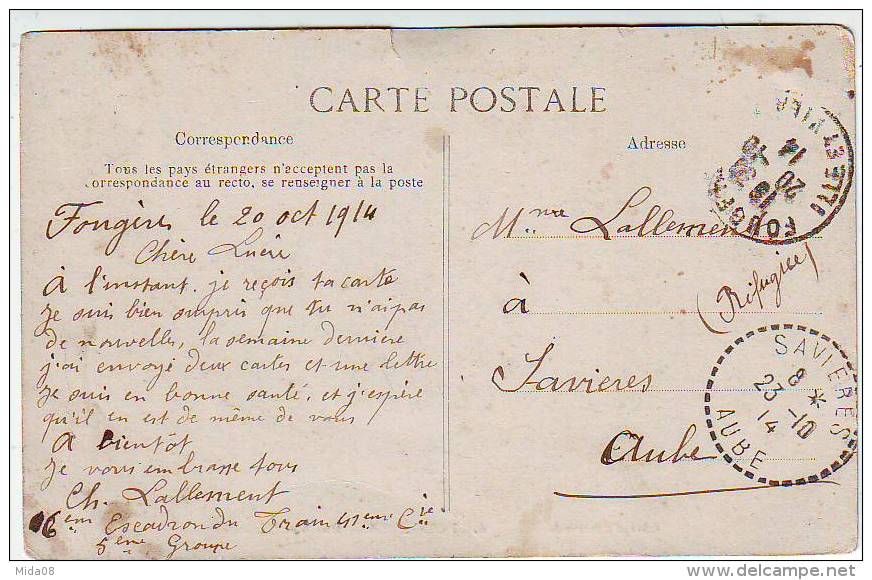 CARTE POSTALE
Correspondance
Tous les pays étrangers n'acceptent pas la
correspondance au recto, se renseigner à la poste
Fougères le 20 oct 1914
Chère
À l'instant je reçois ta carte
Je suis bien surpris que tu n'ai pas
de nouvelles, la semaine dernière
j'ai envoyé deux cartes et une lettre
Je suis en bonne santé, et j'espère
qu'il en est de même de vous
A bientôt
Je vous embrasse tous
Ch. Lallement
16eme Escadron du Train 41eme Cie
5eme Groupe
Adresse
Mme Lallement
(Réfugiée)
à
Savieres
Aube
FOUGERES
20
14
ILLE ET VILAINE
SAVIERES
8 *
23 -10
14
AUBE
Mida08
delcampe.net